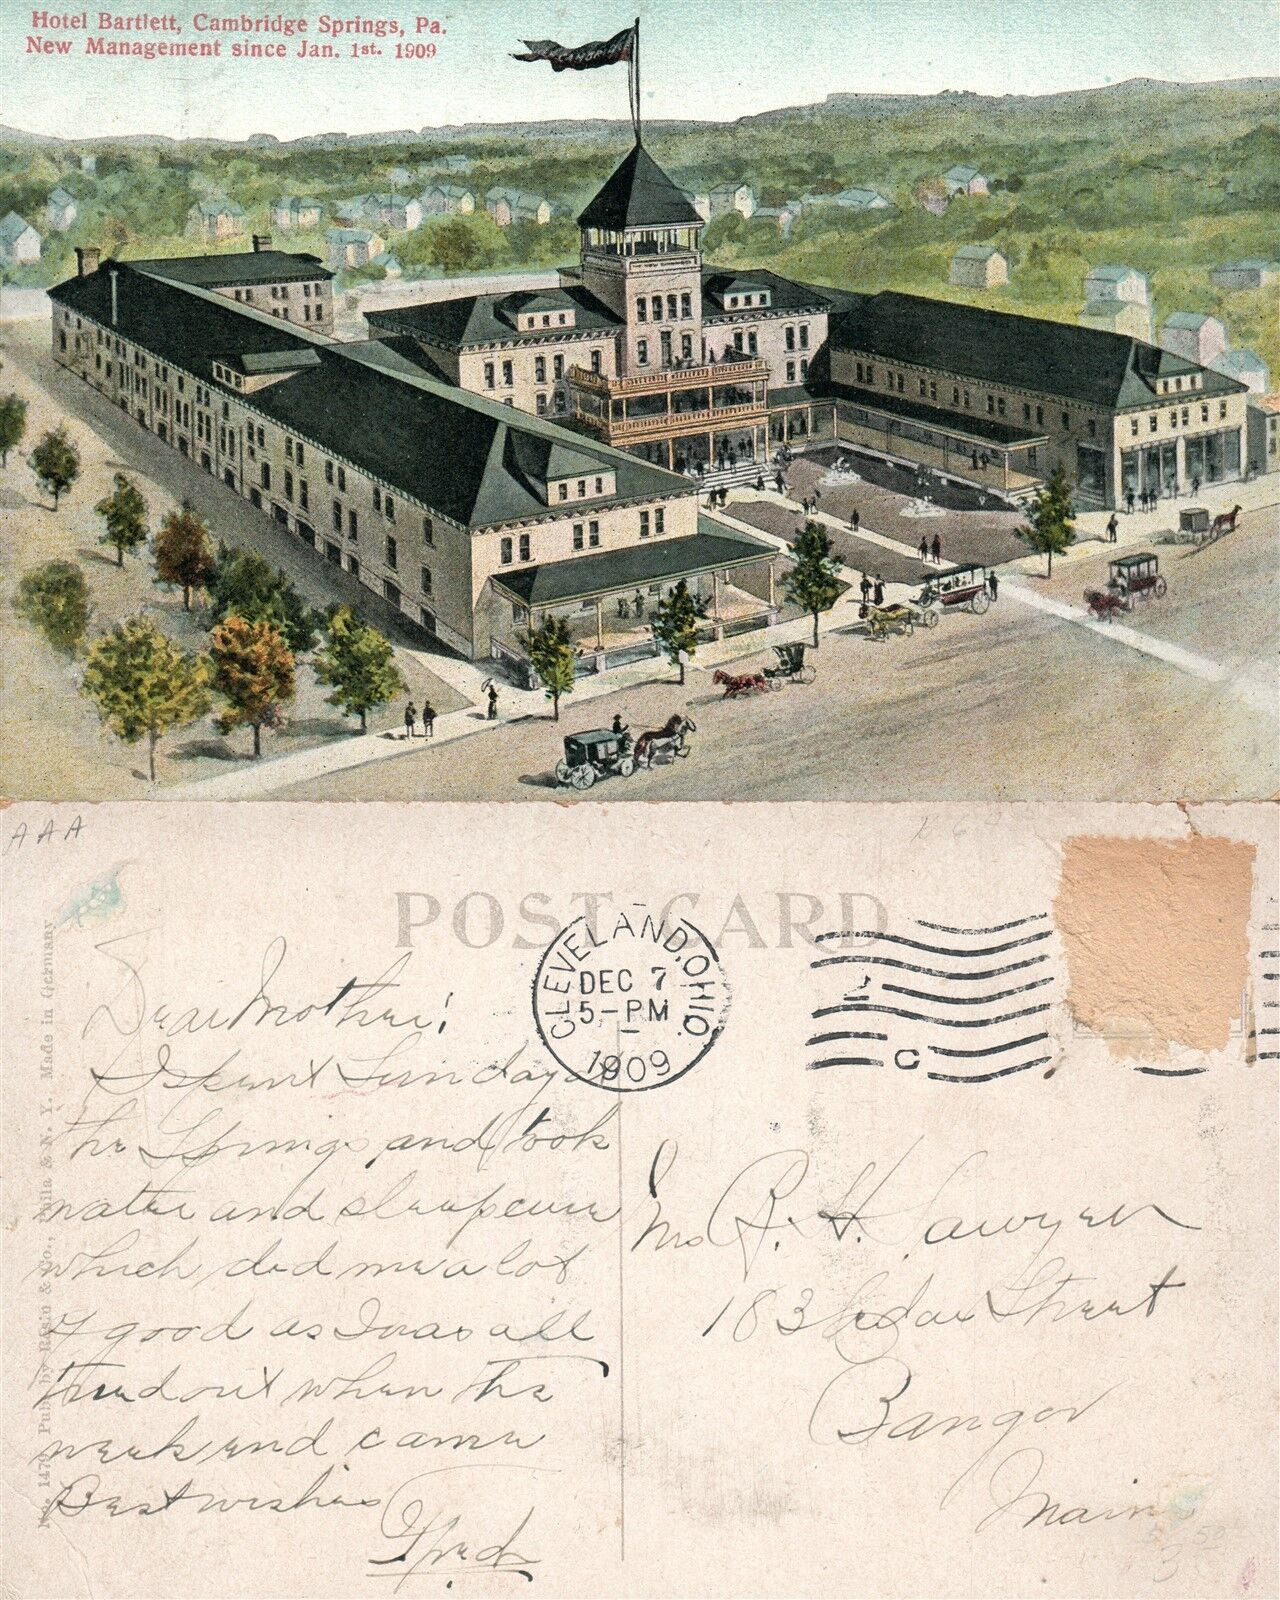 Hotel Bartlett, Cambridge Springs, Pa.
New Management since Jan. 1st. 1909
CAMBRI
AAA
POST CARD
CLEVELAND, OHIO.
DEC 7
5-PM
1909
C
No. 1479 Pub. by Rosin & Co., Phila & N. Y. Made in Germany
Dear Mother:
I spent Sunday at
the Springs and took
water and sleep cure
which did me a lot
of good as I was all
tired out when the
week end came
Best wishes
Fred
Mrs R. H. Sawyer
183 Cedar Street
Bangor
Maine
3